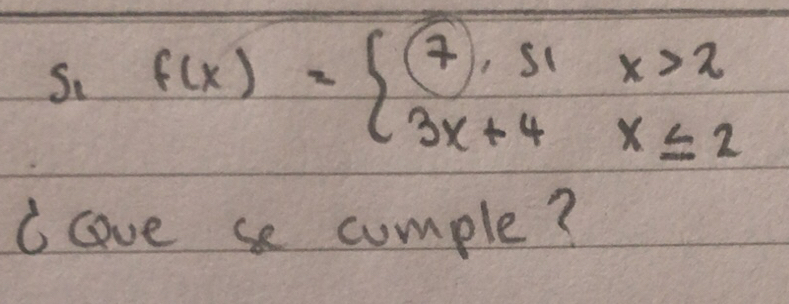 Si f(x) = { 7, si x > 2
3x + 4 x ≤ 2
¿ Que se cumple ?